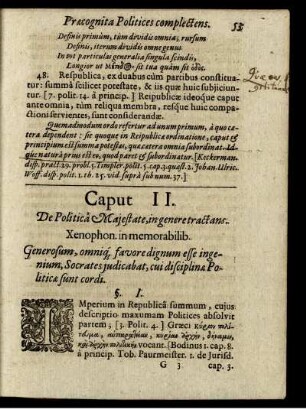 Præcognita Politices complectens. 53
Definis primùm, tùm dividis omnia; rursum
Definis, iterum dividis omne genus.
In tot particulas generalia singula scindis,
Longior ut
sit tua quàm sit
48. Respublica, ex duabus cùm partibus constitua-
tur: summâ scilicet potestate, & iis quæ huic subjiciun-
tur. [7. polit. 14. à princip.] Reipublicæ ideoque caput
ante omnia, tùm reliqua membra, resque huic compa-
ctioni servientes, sunt considerandæ.
Quemadmodum ordo refertur ad unum primum, à quo cæ-
tera dependent: sic quoque in Reipublicæ ordinatione, caput &
principium est summa potestas, qua cætera omnia subordinat. Id-
que naturâ prius est eo, quod paret & subordinatur. [Keckerman.
disp. pract. 20. probl. 1. Timpler. polit. 1. cap. 3. quæst. 2. Johan. Ulric.
Wolf. disp. polit. 1. th. 25. vid. suprà sub num. 37.]
Caput II.
De Politicâ Majestate, in genere tractans.
Xenophon. in memorabilib.
Generosum, omniq́, favore dignum esse in-
genium, Socrates judicabat, cui disciplinæ Po-
liticæ sunt cordi.
§. I.
IMperium in Republicâ summum, cujus
descriptio maximam Politices absolvit
partem; [3. Polit. 4.] Græci
vocant. [Bodinus 1. cap. 8.
à princip. Tob. Paurmeister. 1. de Jurisd.
G 3 cap. 3.